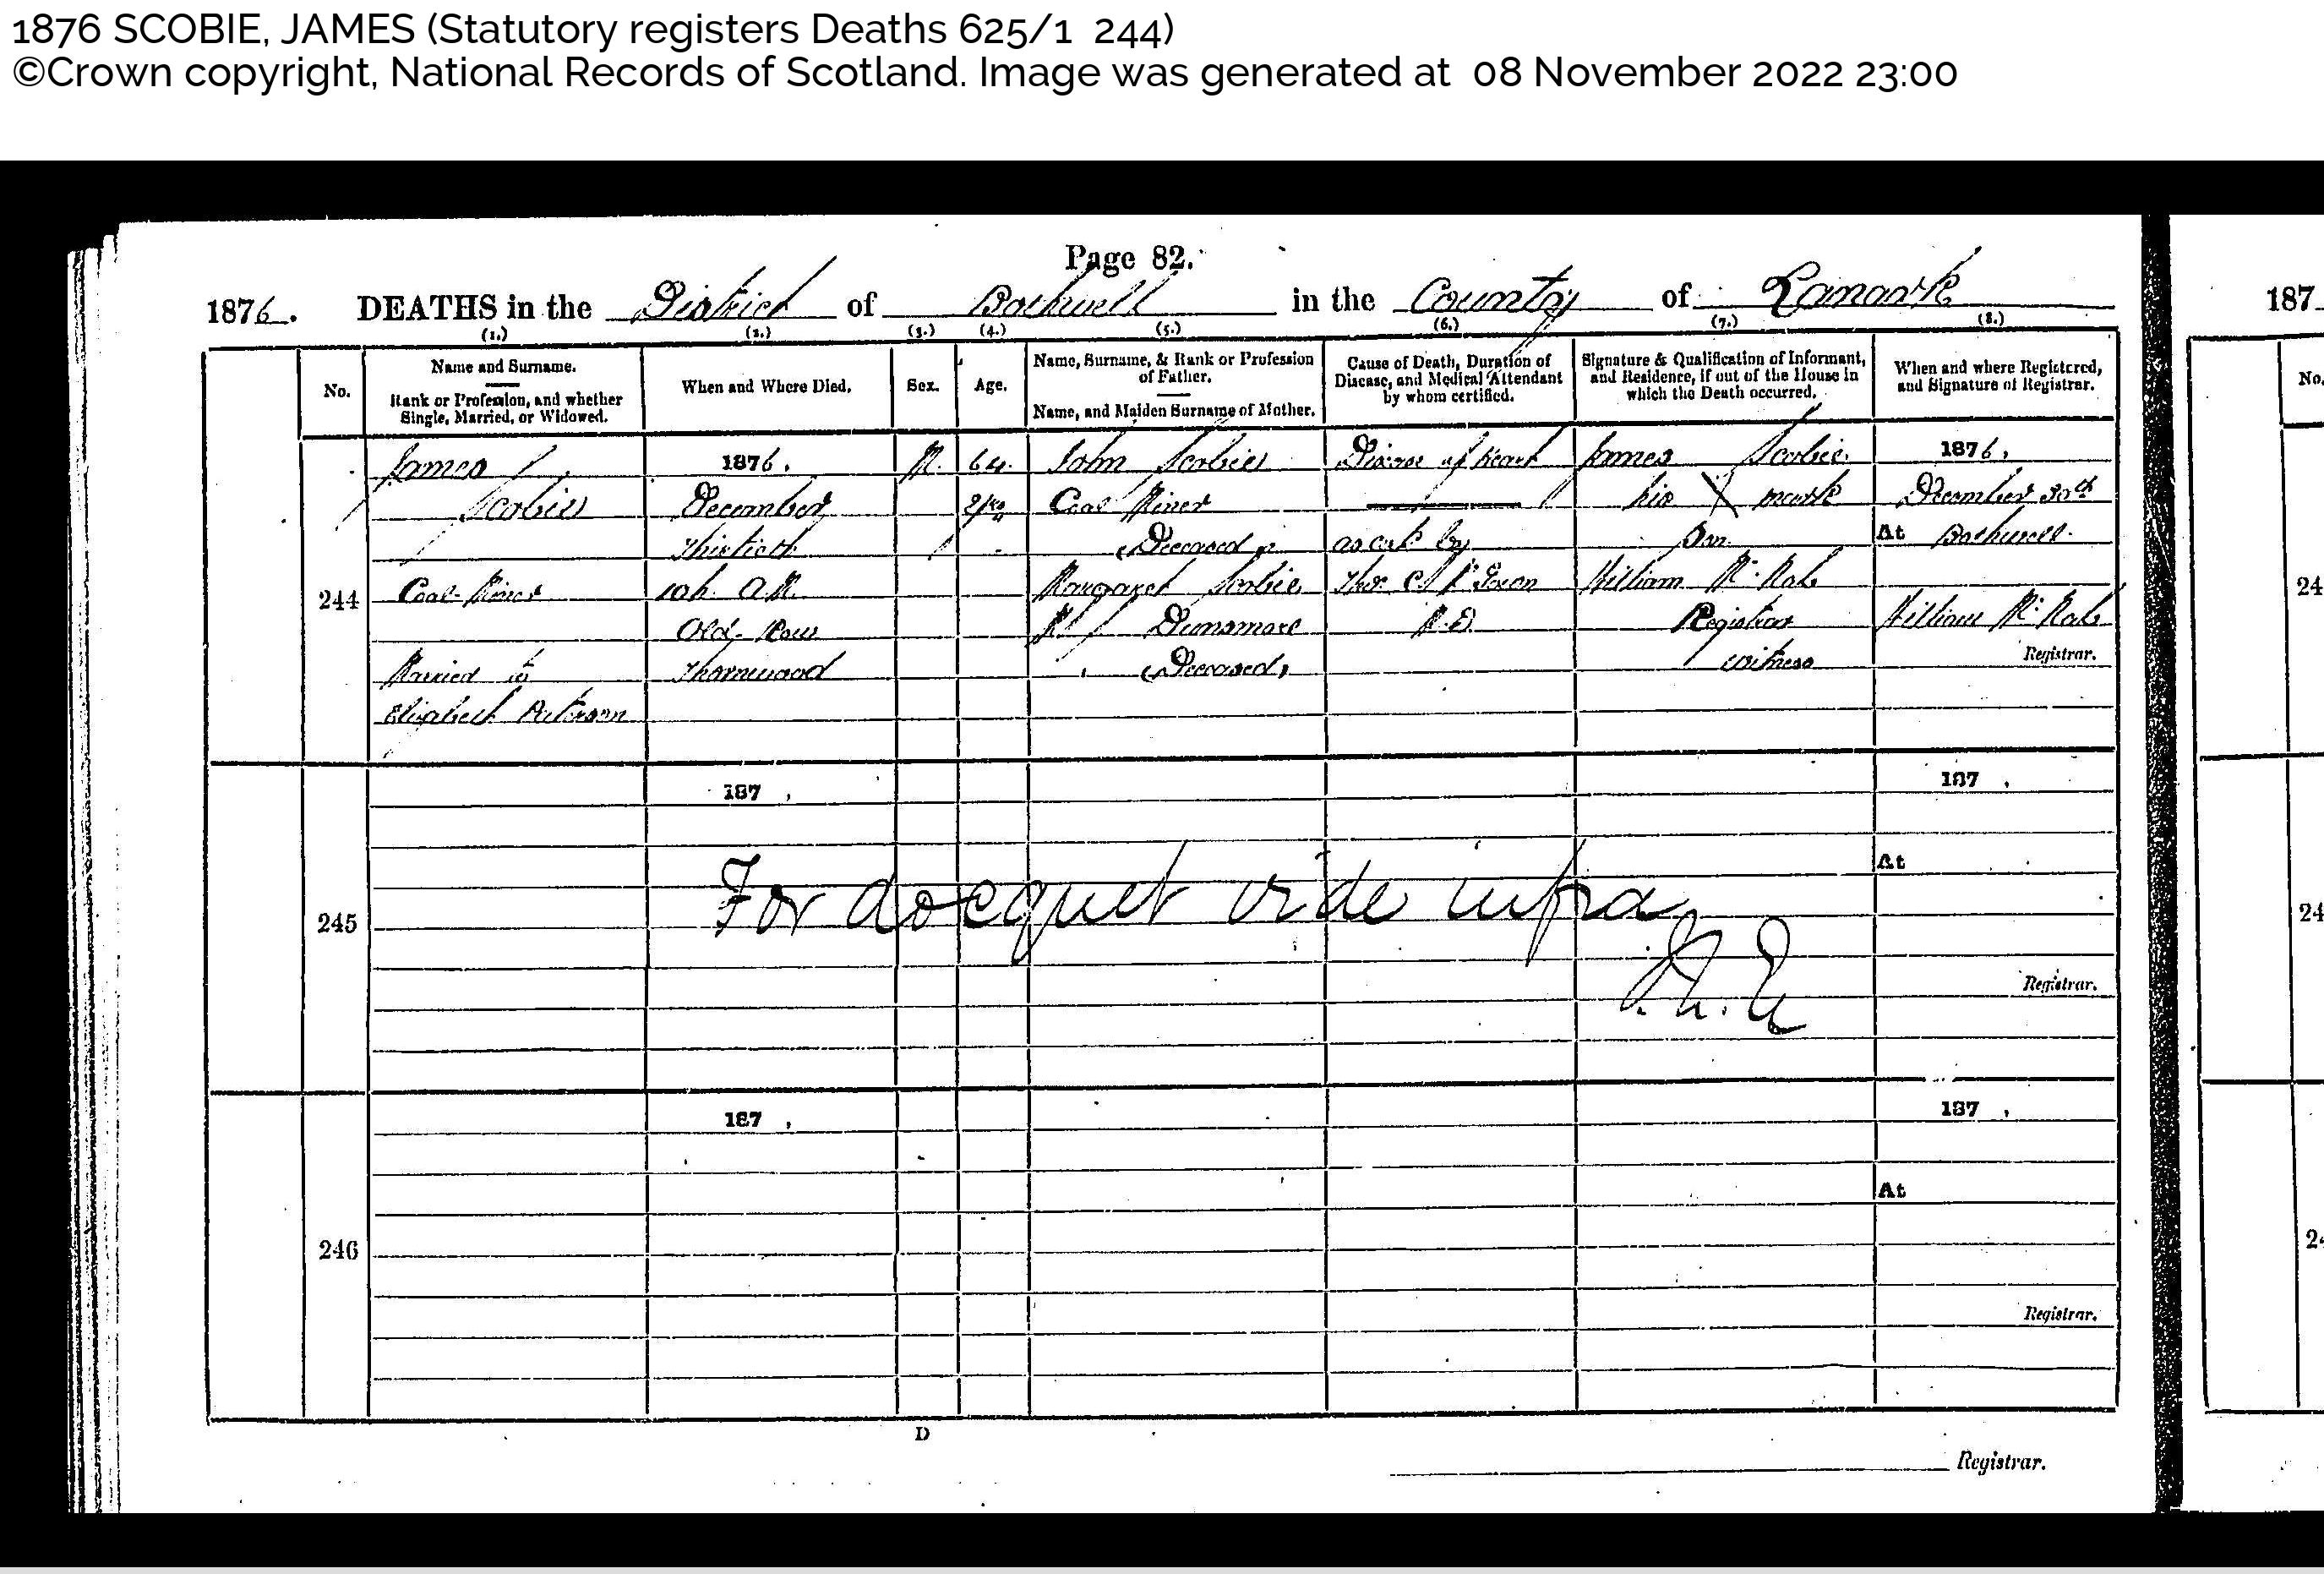 1876 SCOBIE, JAMES (Statutory registers Deaths 625/1 244)
©Crown copyright, National Records of Scotland. Image was generated at 08 November 2022 23:00
Page 82.
1876. DEATHS in the District of Bothwell in the County of Lanark
187
(1.) (2.) (3.) (4.) (5.) (6.) (7.) (8.)
No.
Name and Surname.
Rank or Profession, and whether
Single, Married, or Widowed.
When and Where Died.
Sex.
Age.
Name, Surname, & Rank or Profession
of Father.
Name, and Maiden Surname of Mother.
Cause of Death, Duration of
Disease, and Medical Attendant
by whom certified.
Signature & Qualification of Informant,
and Residence, if out of the House in
which the Death occurred.
When and where Registered,
and Signature of Registrar.
No.
244
James
Scobie
Coal Miner
Married to
Elizabeth Paterson
1876,
December
Thirtieth
10h. A.M.
Old Row
Thornwood
M.
64
yrs
John Scobie
Coal Miner
(Deceased)
Margaret Scobie
M/ Dunsmore
(Deceased)
Disease of heart
as cert by
M.D.
James Scobie
his X mark
Son
William McNab
Registrar
witness
1876,
December 30th
At Bothwell
William McNab
Registrar.
24
245
187 ,
187 ,
At
For docquet vide infra
Registrar.
24
246
187 ,
187 ,
At
Registrar.
24
D
Registrar.